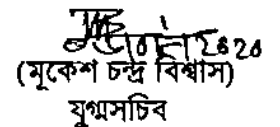 (মূকেশ চন্দ্র বিশ্বাস)
যুগ্মসচিব